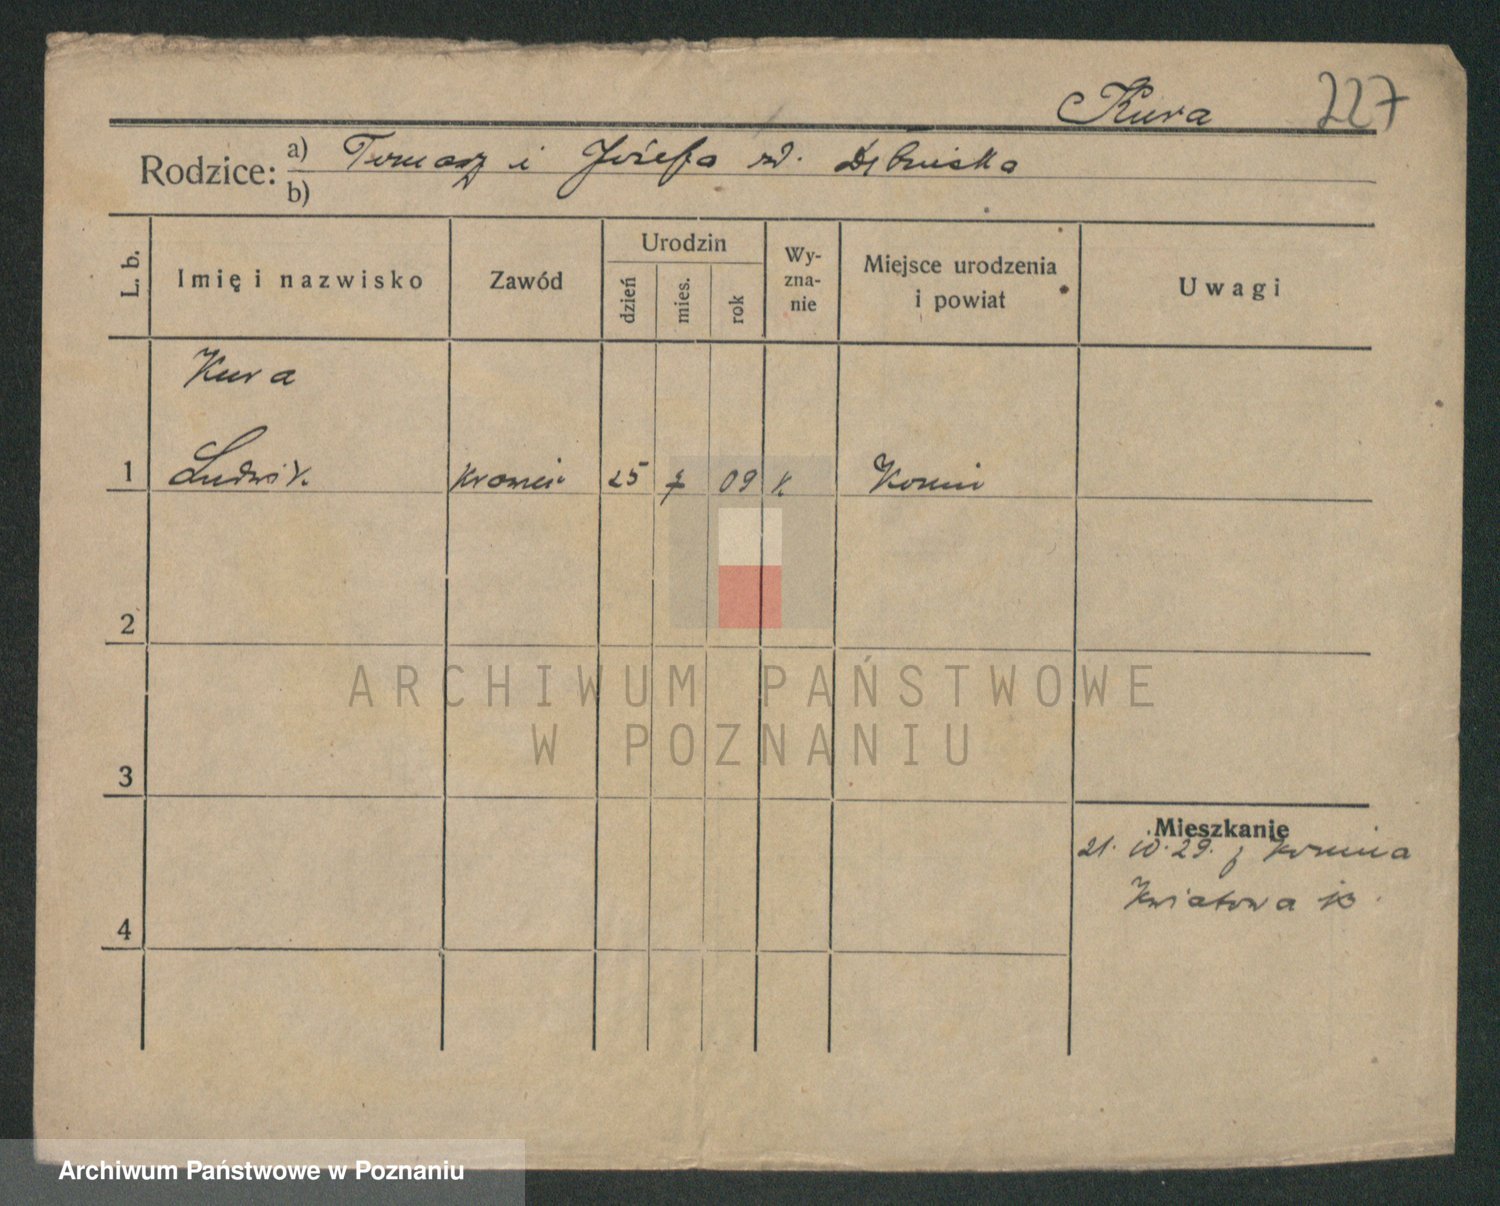 Kura 227
Rodzice: a) Tomasz i Józefa rd. Dębińska
b)
L. b.
Imię i nazwisko
Zawód
Urodzin
dzień
mies.
rok
Wy-
zna-
nie
Miejsce urodzenia
i powiat
Uwagi
Kura
1 Ludwik krawiec 25 7 09 k.
2
3
4
Mieszkanie
21. 10. 29. z
Kwiatowa
ARCHIWUM PAŃSTWOWE
W POZNANIU
Archiwum Państwowe w Poznaniu